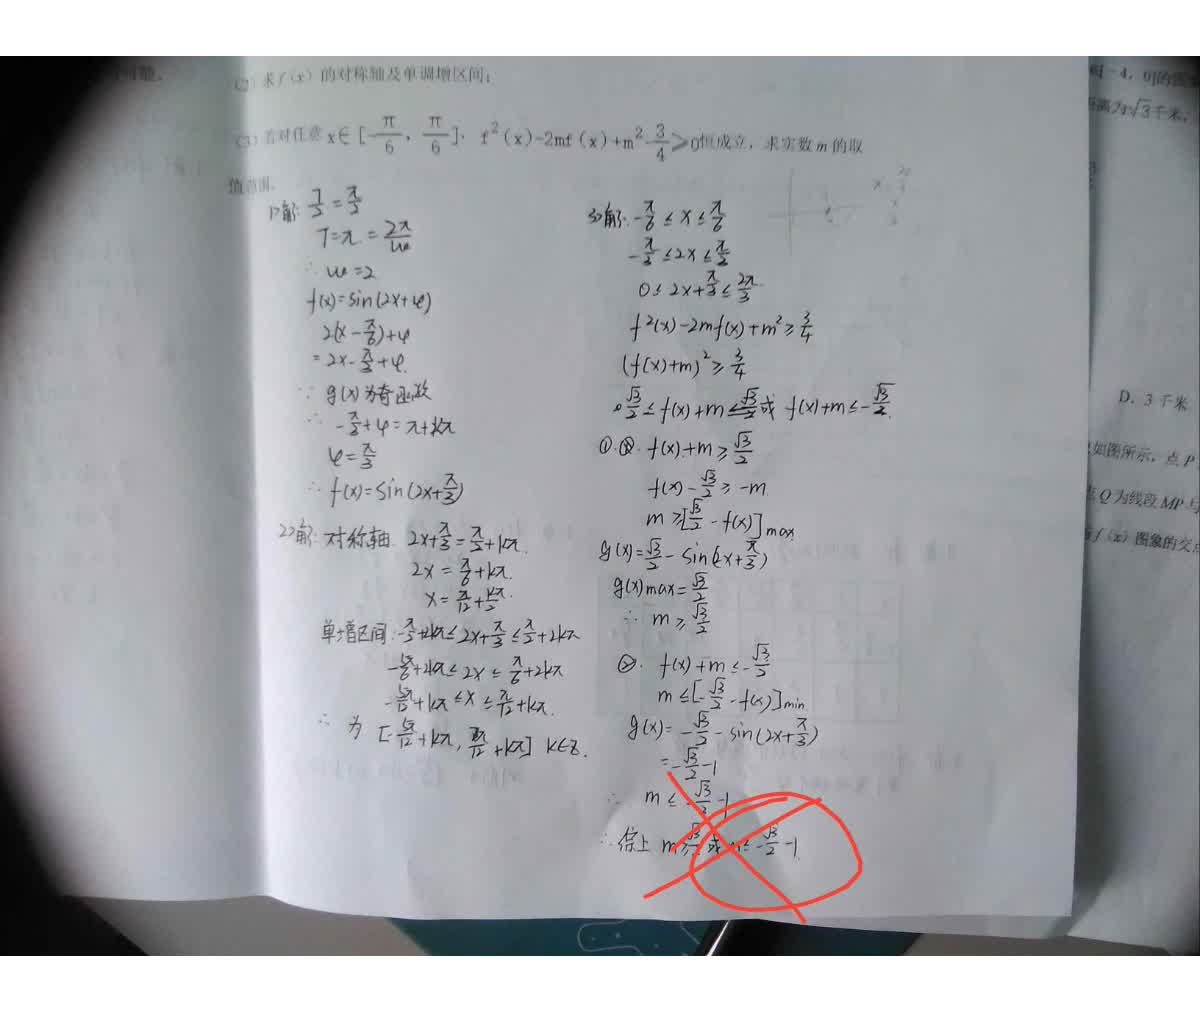 (2) 求 f (x) 的对称轴及单调增区间;
(3) 若对任意 x∈[-π/6, π/6], f²(x)-2mf(x)+m²-3/4≥0恒成立, 求实数 m 的取
值范围.
1)解: T/2=π/2
T=π=2π/ω
∴ω=2
f(x)=sin(2x+φ)
2(x-π/6)+φ
=2x-π/3+φ.
∵ g(x)为奇函数
∴ -π/3+φ=π+kπ
φ=π/3
∴ f(x)=sin(2x+π/3)
2)解: 对称轴. 2x+π/3=π/2+kπ.
2x=π/6+kπ.
x=π/12+kπ/2
单增区间: -π/2+2kπ≤2x+π/3≤π/2+2kπ
-5π/6+2kπ≤2x≤π/6+2kπ
-5π/12+kπ≤x≤π/12+kπ.
∴ 为 [-5π/12+kπ, π/12+kπ] k∈Z.
3)解: -π/6≤x≤π/6
-π/3≤2x≤π/3
0≤2x+π/3≤2π/3.
f²(x)-2mf(x)+m²≥3/4
(f(x)+m)²≥3/4
√3/2≤f(x)+m≤√3/2或 f(x)+m≤-√3/2.
①. f(x)+m≥√3/2
f(x)-√3/2≥-m
m≥[√3/2-f(x)]max
g(x)=√3/2-sin(2x+π/3)
g(x)max=√3/2
∴ m≥√3/2
②. f(x)+m≤-√3/2
m≤[-√3/2-f(x)]min
g(x)=-√3/2-sin(2x+π/3)
=-√3/2-1
∴ m≤-√3/2-1
∴综上 m≥√3/2或m≤-√3/2-1.
-4, 0]的图
距离为√3千米,
D. 3 千米
如图所示, 点 P
Q 为线段 MP 与
f (x) 图象的交点